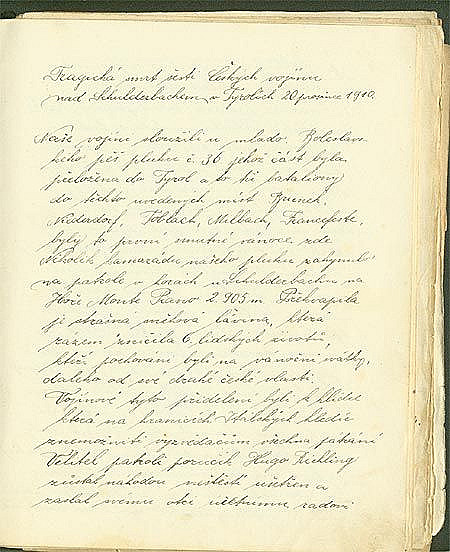 Tragická smrt šesti Českých vojínů
nad Schulderbachem v Tyrolích 20 prosince 1910.
Naše vojíni sloužili u mlado Boleslav-
ského pěš pluku č. 36 jehož část byla
přeložena do Tyrol a to tři bataliony
do těchto uvedených míst Bruneck,
Niderdorf, Toblach, Milbach, Francfeste,
byly to první smutné vánoce zde
Několik kamarádů našeho pluku zahynulo
na patrole v horách u Schulderbachu na
Hoře Monte Piano 2.905 m. Překvapila
je strašná sněhová lavina, která
rázem zničila 6. lidských životů,
kteří pochováni byli na vánoční svátky,
daleko od své drahé české vlasti.
Vojínové tyto přiděleni byli k hlídce
která na hranicích Italských hleděla
znemožniti vyzvědačům všechna pátrání
Velitel patroly poručík Hugo Richling
zůstal náhodou neštěstí ušetřen a
zaslal svému otci radovi